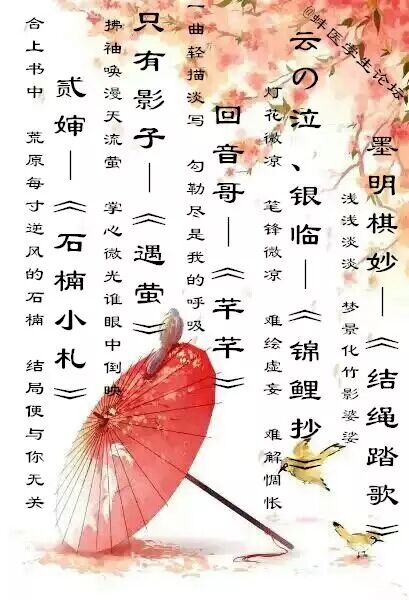 @蚌医学生论坛
墨明棋妙—《结绳踏歌》
浅浅淡淡 梦景化竹影婆娑
云の泣、银临—《锦鲤抄》
灯花微凉 笔锋微凉 难绘虚妄 难解惆怅
回音哥—《芊芊》
一曲轻描淡写 勾勒尽是我的呼吸
只有影子—《遇萤》
拂袖唤漫天流萤 掌心微光谁眼中倒映
贰婶—《石楠小札》
合上书中 荒原每寸逆风的石楠 结局便与你无关